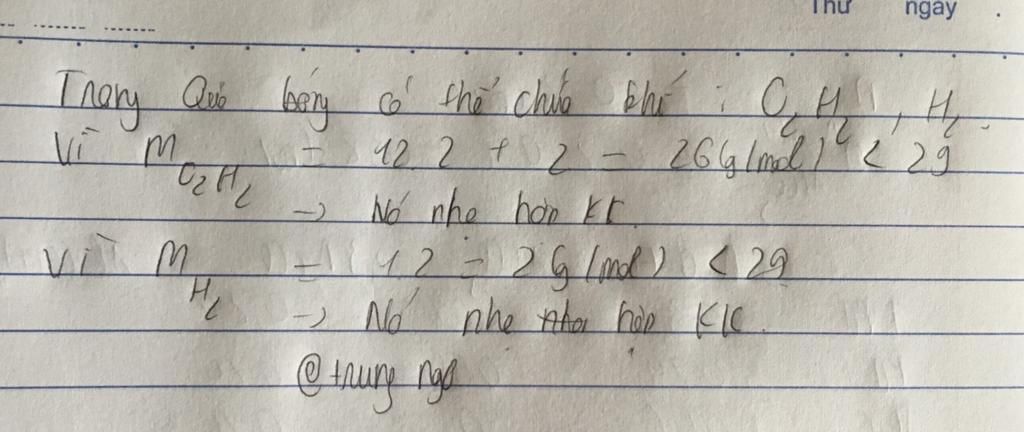 Thứ ngày
Trong Quả bóng có thể chứa khí : C2H2 , H2.
Vì M C2H2 = 12.2 + 2 = 26(g/mol) < 29
-> Nó nhẹ hơn KK
Vì M H2 = 1.2 = 2(g/mol) < 29
-> Nó nhẹ hơn KK.
@trung ngo